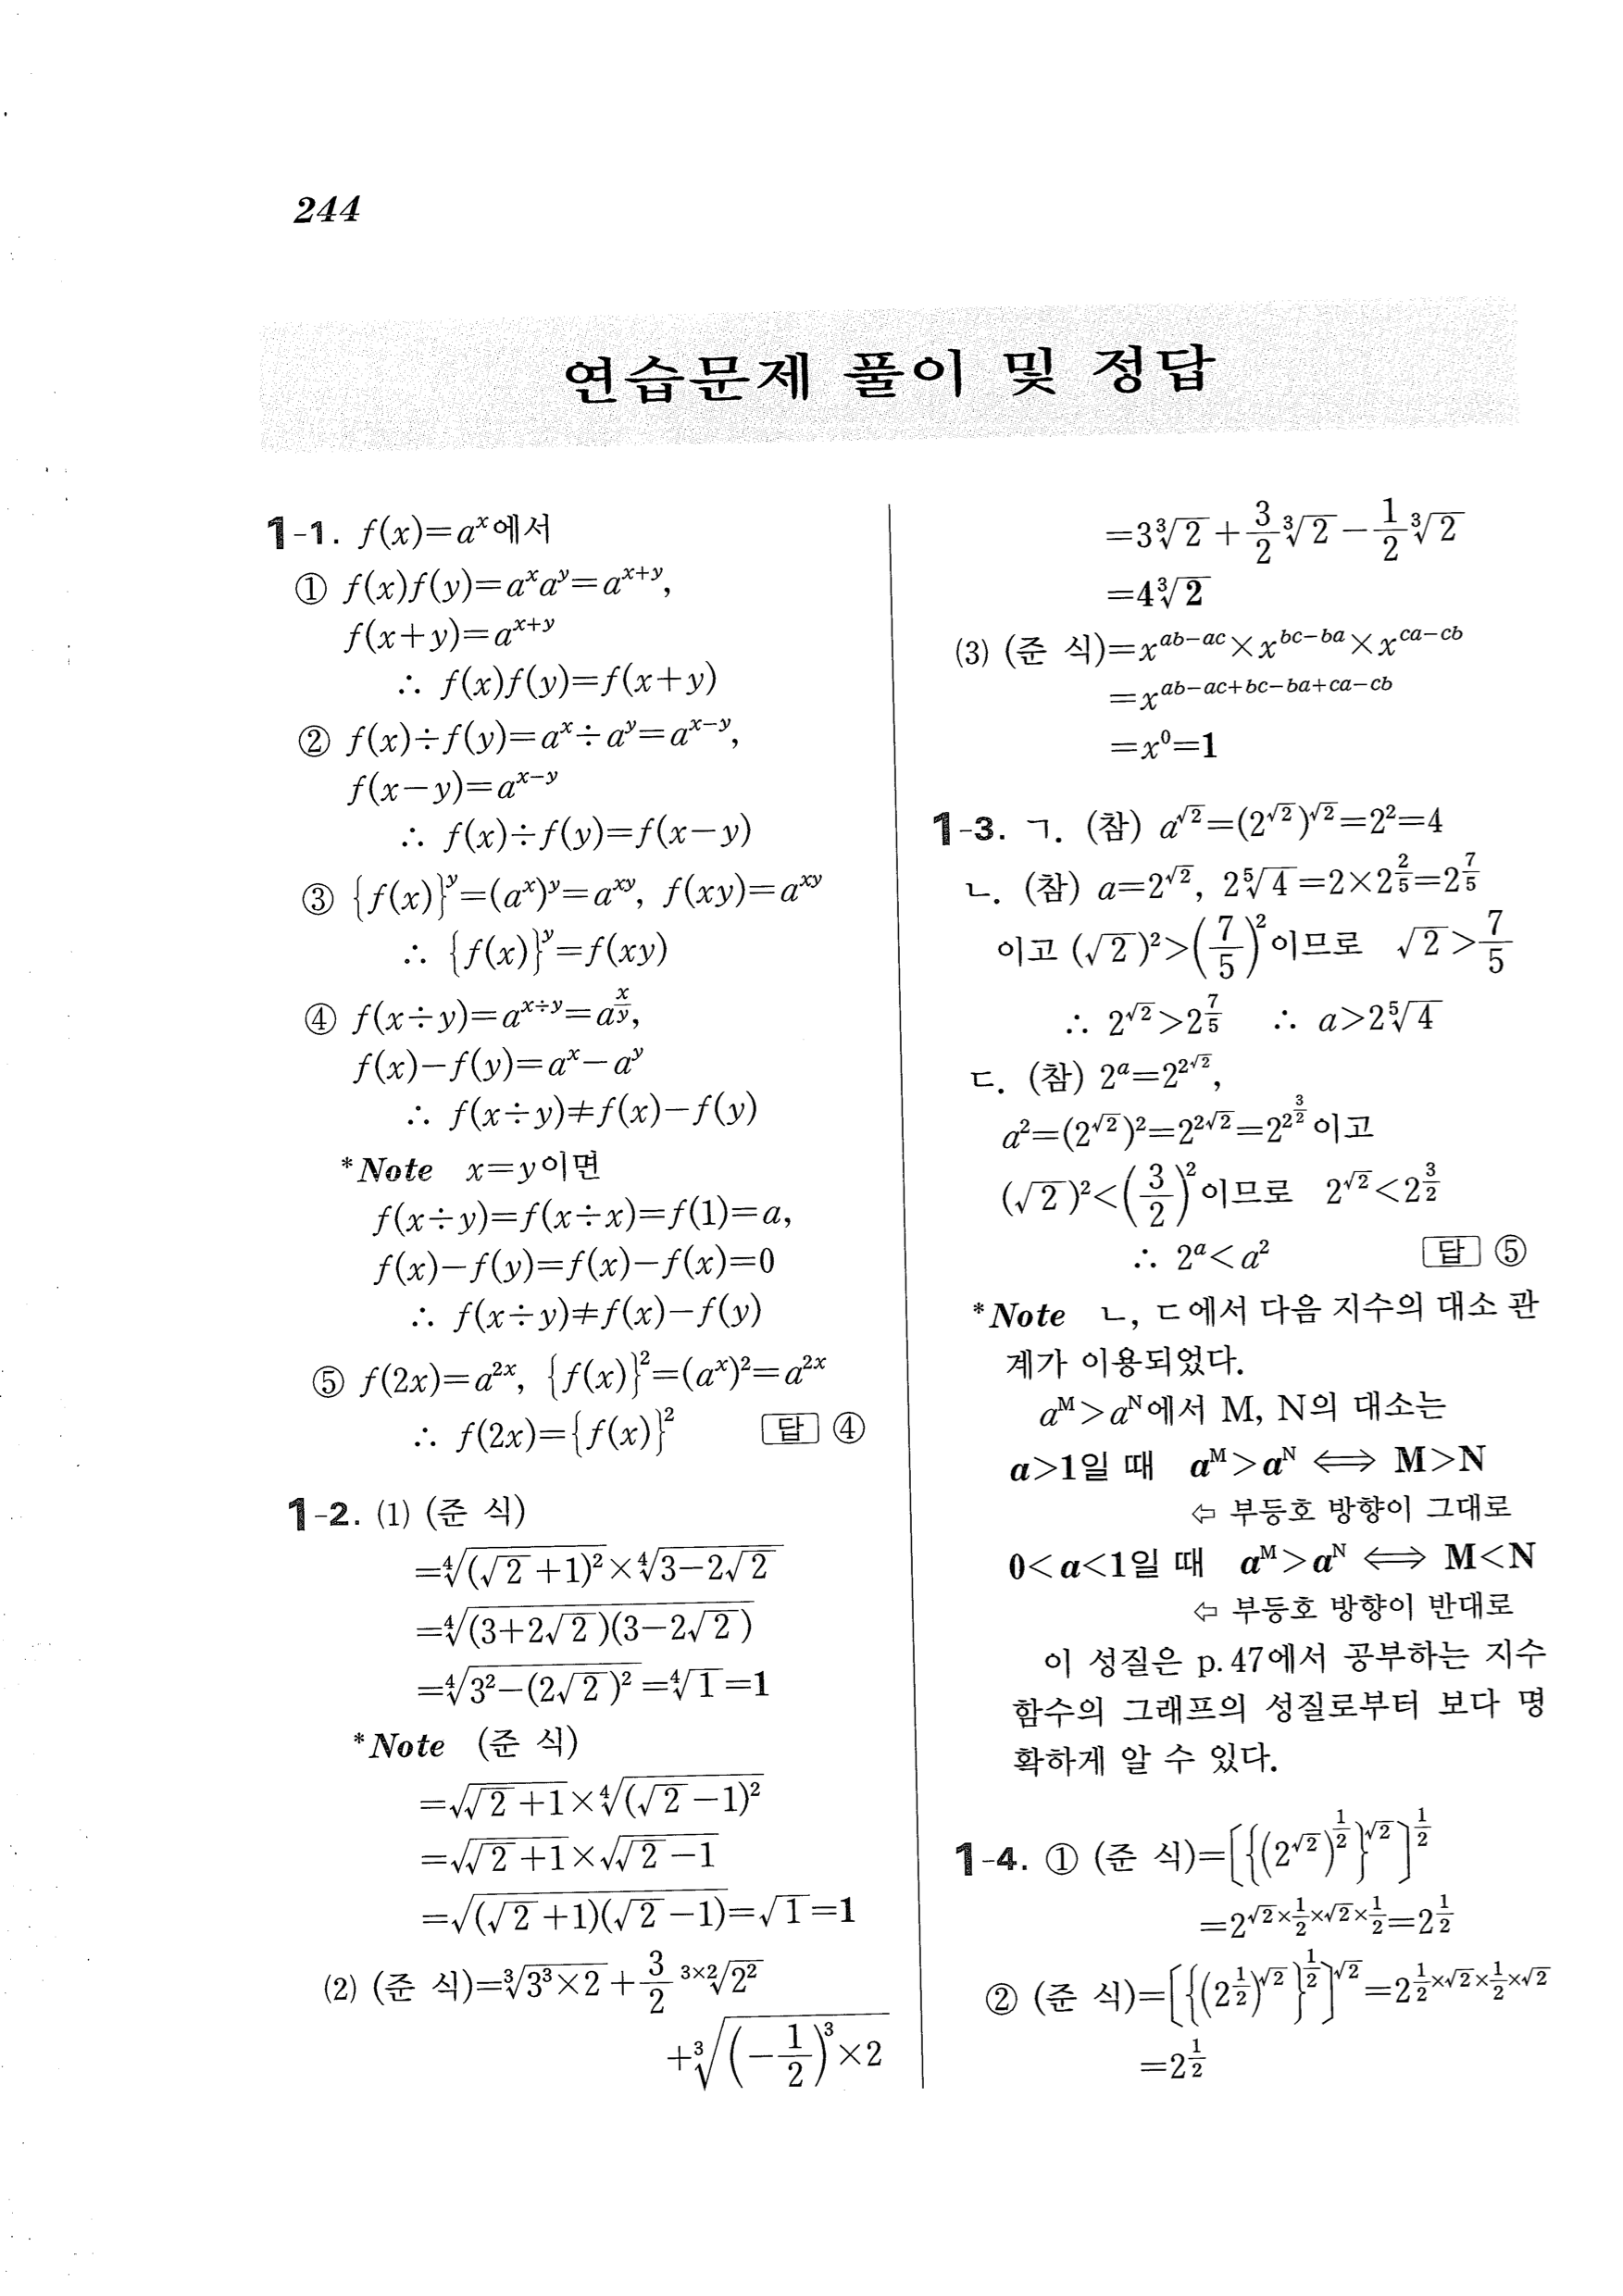 244
연습문제 풀이 및 정답
1-1. f(x)=a^x에서
① f(x)f(y)=a^x a^y=a^{x+y},
f(x+y)=a^{x+y}
∴ f(x)f(y)=f(x+y)
② f(x)÷f(y)=a^x÷a^y=a^{x-y},
f(x-y)=a^{x-y}
∴ f(x)÷f(y)=f(x-y)
③ {f(x)}^y=(a^x)^y=a^{xy}, f(xy)=a^{xy}
∴ {f(x)}^y=f(xy)
④ f(x÷y)=a^{x÷y}=a^{\frac{x}{y}},
f(x)-f(y)=a^x-a^y
∴ f(x÷y)≠f(x)-f(y)
*Note x=y이면
f(x÷y)=f(x÷x)=f(1)=a,
f(x)-f(y)=f(x)-f(x)=0
∴ f(x÷y)≠f(x)-f(y)
⑤ f(2x)=a^{2x}, {f(x)}^2=(a^x)^2=a^{2x}
∴ f(2x)={f(x)}^2 답 ④
1-2. (1) (준 식)
=\sqrt[4]{(\sqrt{2}+1)^2}×\sqrt[4]{3-2\sqrt{2}}
=\sqrt[4]{(3+2\sqrt{2})(3-2\sqrt{2})}
=\sqrt[4]{3^2-(2\sqrt{2})^2}=\sqrt[4]{1}=1
*Note (준 식)
=\sqrt{\sqrt{2}+1}×\sqrt[4]{(\sqrt{2}-1)^2}
=\sqrt{\sqrt{2}+1}×\sqrt{\sqrt{2}-1}
=\sqrt{(\sqrt{2}+1)(\sqrt{2}-1)}=\sqrt{1}=1
(2) (준 식)=\sqrt[3]{3^3×2}+\frac{3}{2}\sqrt[3×2]{2^2}
+\sqrt[3]{(-\frac{1}{2})^3×2}
=3\sqrt[3]{2}+\frac{3}{2}\sqrt[3]{2}-\frac{1}{2}\sqrt[3]{2}
=4\sqrt[3]{2}
(3) (준 식)=x^{ab-ac}×x^{bc-ba}×x^{ca-cb}
=x^{ab-ac+bc-ba+ca-cb}
=x^0=1
1-3. ㄱ. (참) a^{\sqrt{2}}=(2^{\sqrt{2}})^{\sqrt{2}}=2^2=4
ㄴ. (참) a=2^{\sqrt{2}}, 2\sqrt[5]{4}=2×2^{\frac{2}{5}}=2^{\frac{7}{5}}
이고 (\sqrt{2})^2>(\frac{7}{5})^2이므로 \sqrt{2}>\frac{7}{5}
∴ 2^{\sqrt{2}}>2^{\frac{7}{5}} ∴ a>2\sqrt[5]{4}
ㄷ. (참) 2^a=2^{2^{\sqrt{2}}},
a^2=(2^{\sqrt{2}})^2=2^{2\sqrt{2}}=2^{2^{\frac{3}{2}}}이고
(\sqrt{2})^2<(\frac{3}{2})^2이므로 2^{\sqrt{2}}<2^{\frac{3}{2}}
∴ 2^a<a^2 답 ⑤
*Note ㄴ, ㄷ에서 다음 지수의 대소 관
계가 이용되었다.
a^M>a^N에서 M, N의 대소는
a>1일 때 a^M>a^N ⟺ M>N
⇦ 부등호 방향이 그대로
0<a<1일 때 a^M>a^N ⟺ M<N
⇦ 부등호 방향이 반대로
이 성질은 p.47에서 공부하는 지수
함수의 그래프의 성질로부터 보다 명
확하게 알 수 있다.
1-4. ① (준 식)=[{(2^{\sqrt{2}})^{\frac{1}{2}}}^{\sqrt{2}}]^{\frac{1}{2}}
=2^{\sqrt{2}×\frac{1}{2}×\sqrt{2}×\frac{1}{2}}=2^{\frac{1}{2}}
② (준 식)=[{(2^{\frac{1}{2}})^{\sqrt{2}}}^{\frac{1}{2}}]^{\sqrt{2}}=2^{\frac{1}{2}×\sqrt{2}×\frac{1}{2}×\sqrt{2}}
=2^{\frac{1}{2}}